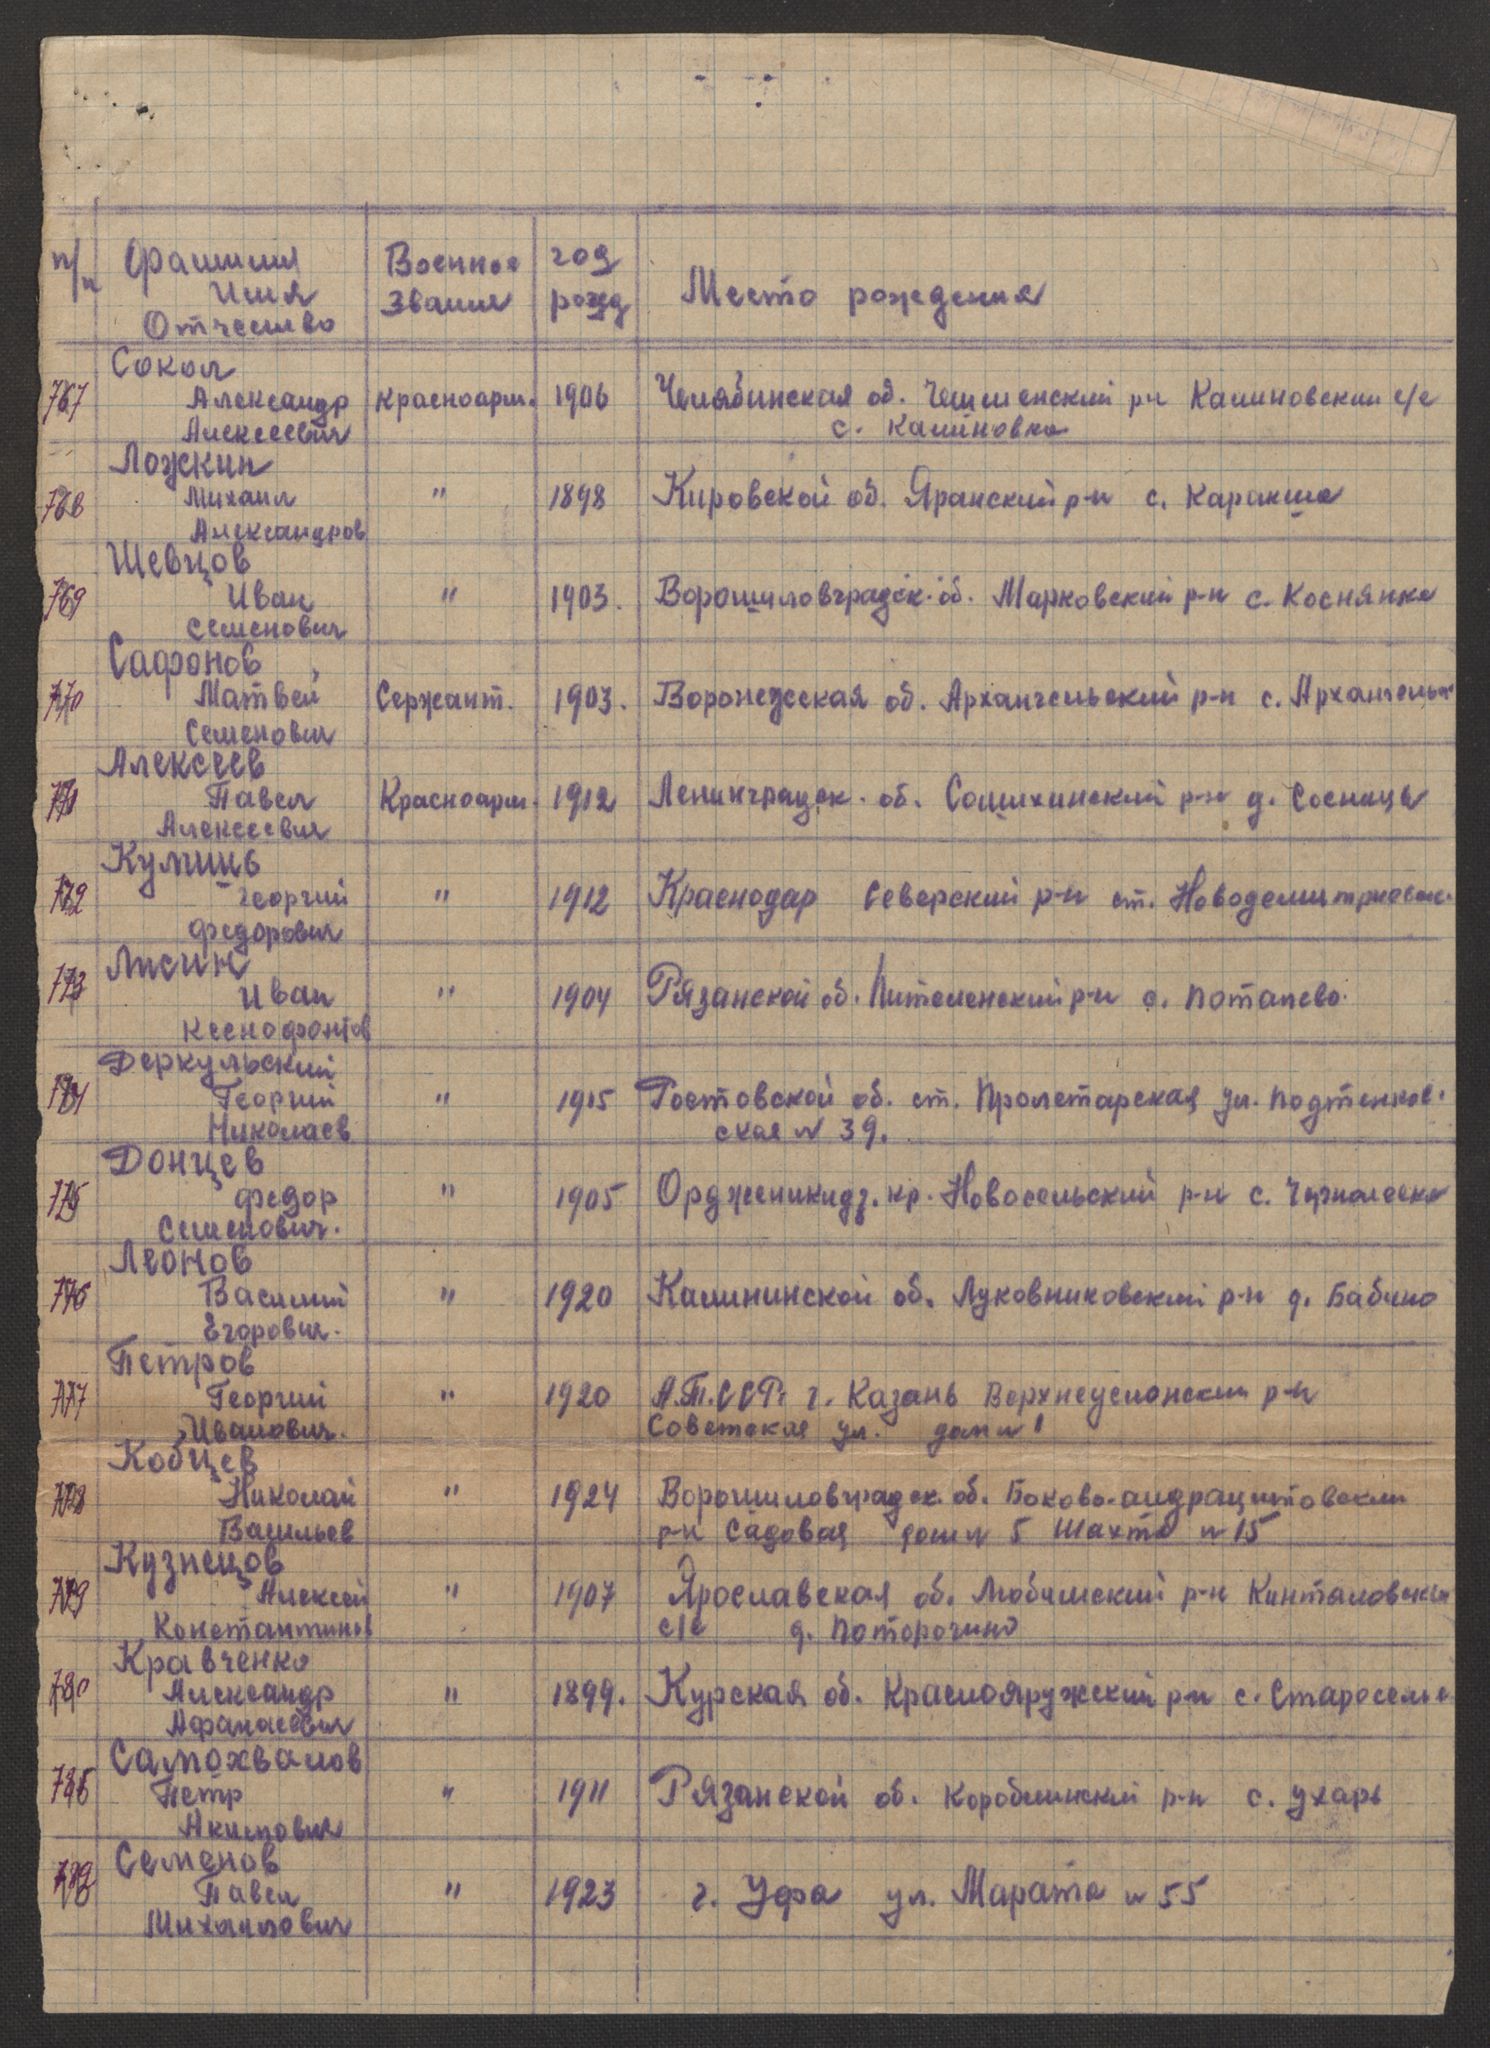 п/п Фамилия Имя Отчество Военное звание год рожд Место рождения
767 Сокол
Александр Красноарм. 1906 Челябинская об. р-н Калиновский с/с
Алексеевич с. Калиновка
Ложкин
768 Михаил " 1898 Кировской об. Яранский р-н с. Каракша
Александров
Шевцов
769 Иван " 1903. Ворошиловградск. об. Марковский р-н с. Коснянка
Семенович
Сафонов
770 Матвей Сержант. 1903. Воронежская об. Архангельский р-н с. Архангельск
Семенович
Алексеев
771 Павел Красноарм. 1912 Ленинградск. об. Сошихинский р-н д. Сосницы
Алексеевич
772 Георгий " 1912 Краснодар Северский р-н ст. Новодемитриевск.
Федорович
Лисин
773 Иван " 1904 Рязанской об. Пителенский р-н с. Потапево.
Ксенофонтов
Деркульский
774 Георгий " 1915 Ростовской об. ст. Пролетарская ул. Подтелков-
Николаев ская № 39.
Донцев
775 Федор " 1905 Ордженикидз. кр. Новосельский р-н с.
Семенович.
Леонов
776 Василий " 1920 Калининской об. Луковниковский р-н д. Бабино
Егорович.
Петров
777 Георгий " 1920 А.Т.ССР. г. Казань Верхнеуслонский р-н
Иванович. Советская ул. дом № 1
Кобцев
778 Николай " 1924 Ворошиловградск. об. Боково-андрацитовский
Васильев р-н Садовая дом № 5 шахта № 15
Кузнецов
779 Алексей " 1907 Ярославская об. Любимский р-н
Константинов с/с д. Поторочино
Кравченко
780 Александр " 1899. Курская об. Краснояружский р-н с. Староселье
Афанасевич
Самохвалов
Петр " 1911 Рязанской об. Кораблинский р-н с. Ухарь
Акимович
Семенов
Павел " 1923 г. Уфа ул. Марата № 55
Михаилович